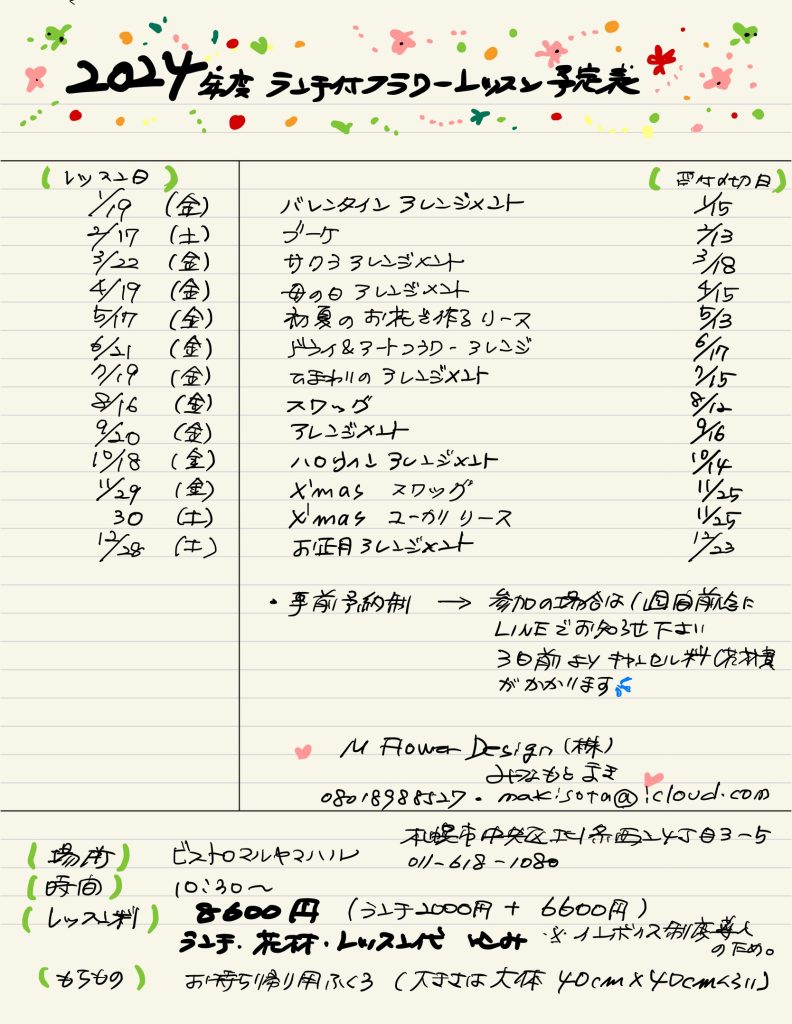 2024年度 ランチ付フラワーレッスン予定表
(レッスン日) (受付〆切日)
1/19 (金) バレンタインアレンジメント 1/15
2/17 (土) ブーケ 2/13
3/22 (金) サクラアレンジメント 3/18
4/19 (金) 母の日アレンジメント 4/15
5/17 (金) 初夏のお花を作るリース 5/13
6/21 (金) ドライ&アートフラワーアレンジ 6/17
7/19 (金) ひまわりのアレンジメント 7/15
8/16 (金) スワッグ 8/12
9/20 (金) アレンジメント 9/16
10/18 (金) ハロウィンアレンジメント 10/14
11/29 (金) X'mas スワッグ 11/25
30 (土) X'mas ユーカリリース 11/25
12/28 (土) お正月アレンジメント 12/23
・事前予約制 → 参加の場合は1週間前迄に
LINEでお知らせ下さい
3日前よりキャンセル料(花材費
がかかります
M Flower Design (株)
みつもと まき
08018988527・makisota@icloud.com
(場所) ビストロマルヤマハル 札幌市中央区北1条西24丁目3-5
011-618-1080
(時間) 10:30〜
(レッスン料) 8600円 (ランチ2000円 + 6600円)
ランチ・花材・レッスン代 込み ※インボイス制度導入
のため。
(もちもの) お持ち帰り用ふくろ (大きさは大体 40cm×40cmくらい)